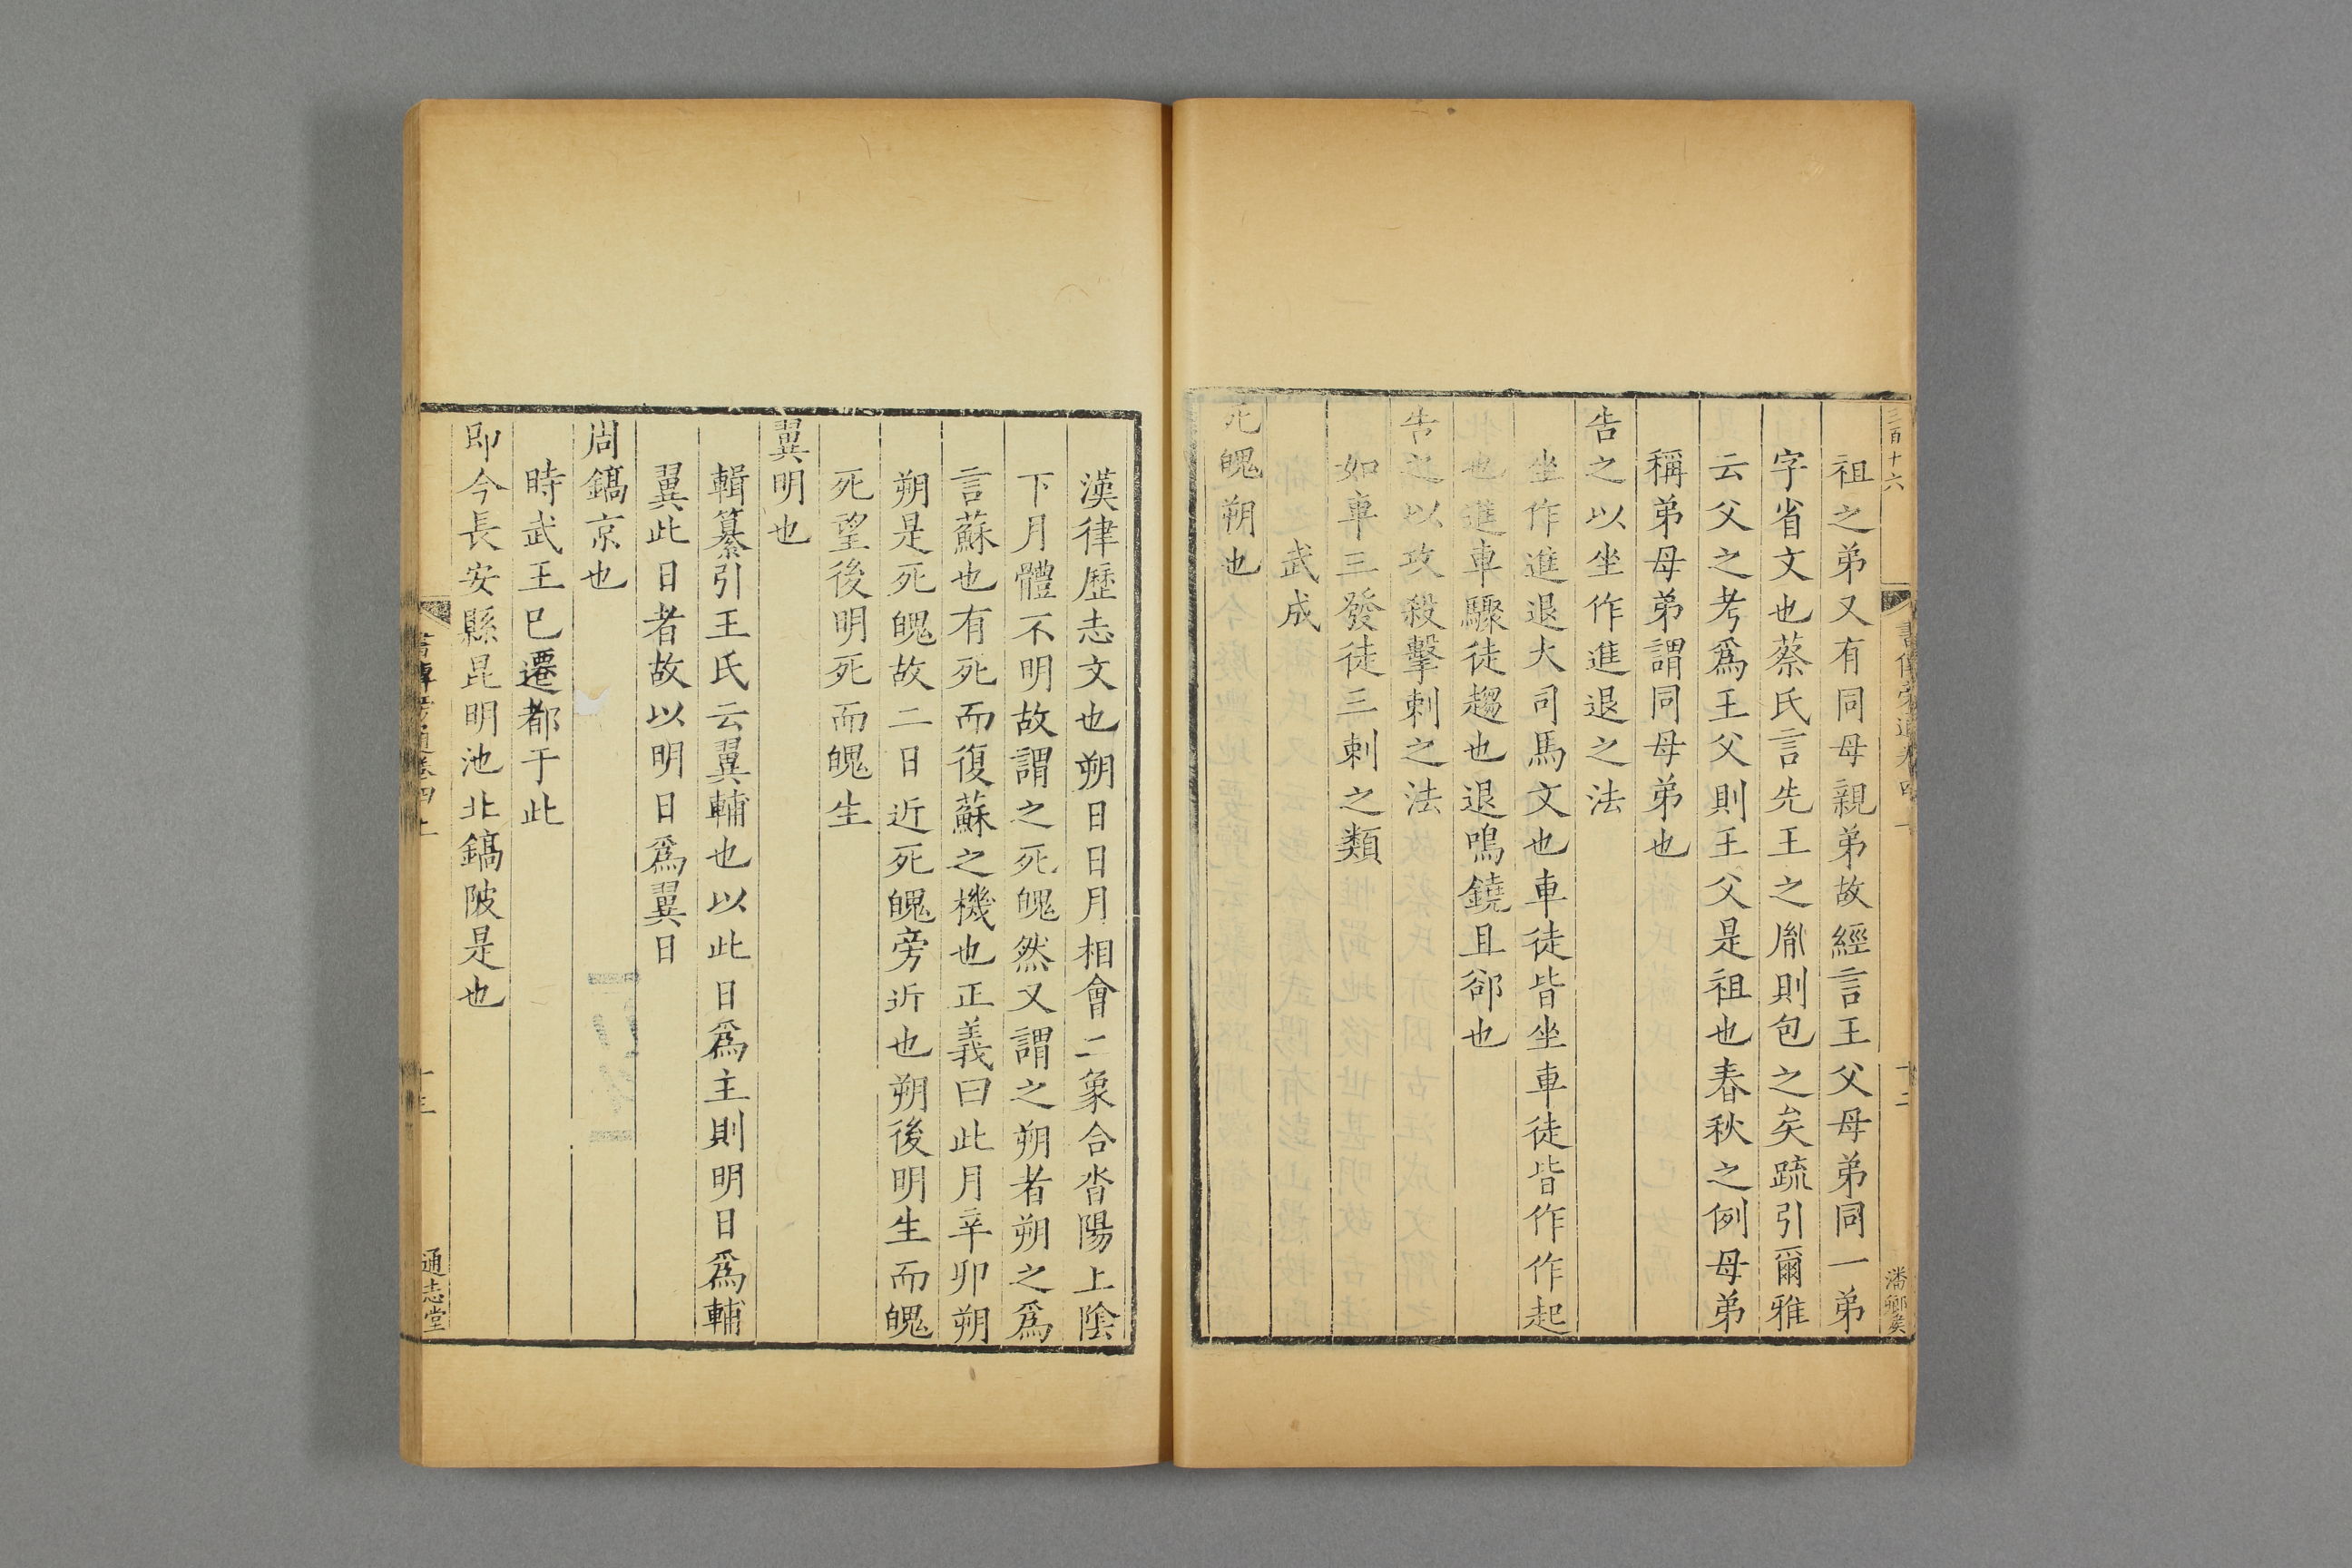 三百十六
十二
潘鄉美
祖之弟又有同母親弟故經言王父母弟同一弟
字省文也蔡氏言先王之胤則包之矣䟽引爾雅
云父之考爲王父則王父是祖也春秋之例母弟
稱弟母弟謂同母弟也
告之以坐作進退之法
坐作進退大司馬文也車徒皆坐車徒皆作作起
也進車驟徒趨也退鳴鐃且郤也
告之以攻殺擊刺之法
如車三發徒三刺之類
武成
死魄朔也
漢律歷志文也朔日日月相會二象合沓陽上陰
下月體不明故謂之死魄然又謂之朔者朔之爲
言蘇也有死而復蘇之機也正義曰此月辛卯朔
朔是死魄故二日近死魄旁近也朔後明生而魄
死望後明死而魄生
翼明也
輯纂引王氏云翼輔也以此日爲主則明日爲輔
翼此日者故以明日爲翼日
周鎬京也
時武王已遷都于此
即今長安縣昆明池北鎬陂是也
書傳旁通卷四上
十三
通志堂